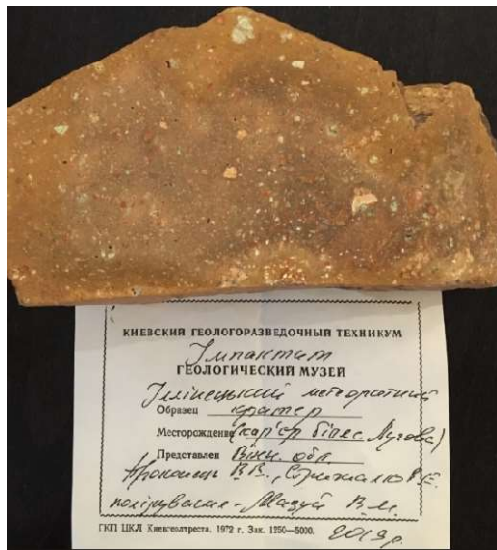 КИЕВСКИЙ ГЕОЛОГОРАЗВЕДОЧНЫЙ ТЕХНИКУМ
Імпактит
ГЕОЛОГИЧЕСКИЙ МУЗЕЙ
Іллінецький метеоритний
Образец кратер
Месторождение (кар'єр біля с. Лугова)
Представлен Вінн. обл.
В.В.,
полірування - Мазуй В.М.
ГКП ЦКЛ Киевгеолтреста. 1972 г. Зак. 1256—5000. 2019 р.